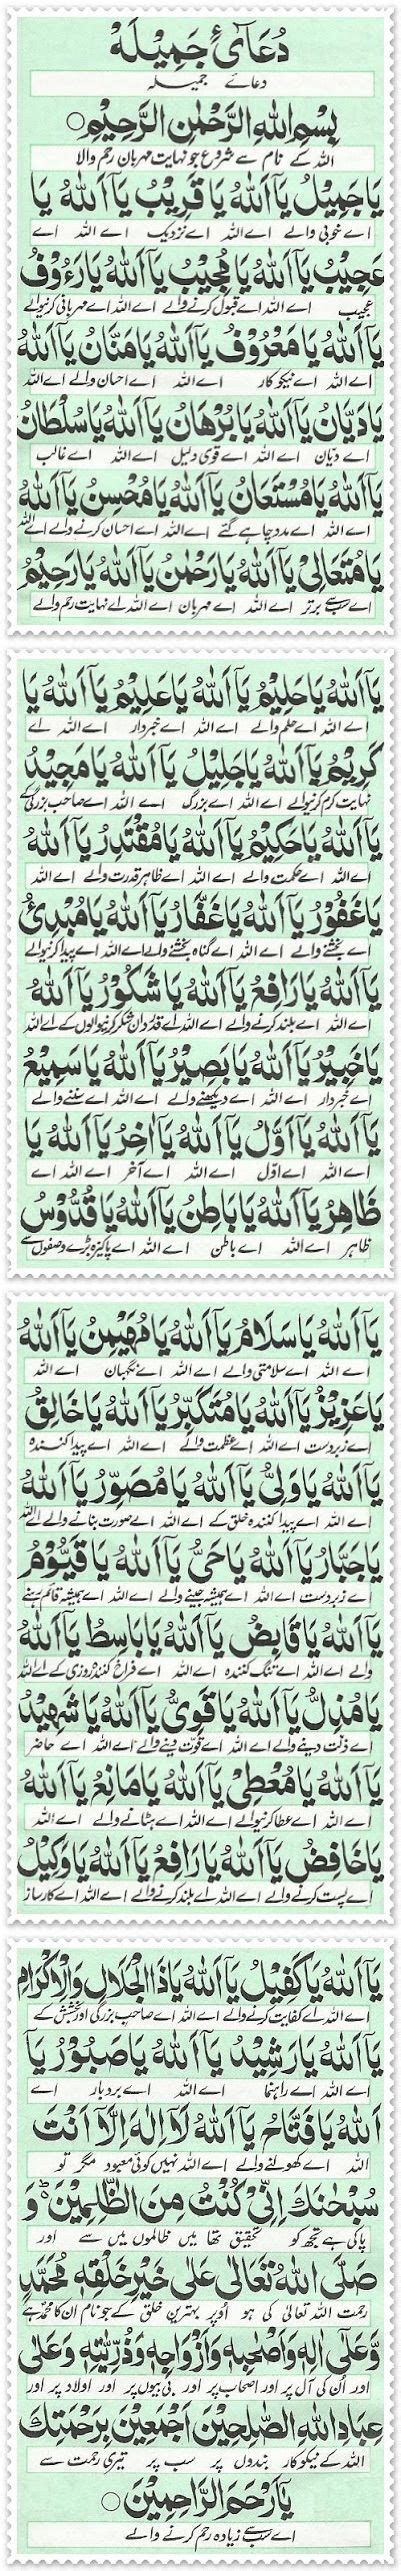 دُعَآئے جَمِیْلَہ
دعائے جمیلہ
بِسْمِ اللهِ الرَّحْمٰنِ الرَّحِیْمِ ○
اللہ کے نام سے شروع جو نہایت مہربان رحم والا
یَا جَمِیْلُ یَآ اَللهُ یَا قَرِیْبُ یَآ اَللهُ یَا
اے خوبی والے اے اللہ اے نزدیک اے اللہ اے
عَجِیْبُ یَآ اَللهُ یَا مُجِیْبُ یَآ اَللهُ یَا رَءُوْفُ
عجیب اے اللہ اے قبول کرنے والے اے اللہ اے مہربانی کرنیوالے
یَآ اَللهُ یَا مَعْرُوْفُ یَآ اَللهُ یَا مَنَّانُ یَآ اَللهُ
اے اللہ اے نیکوکار اے اللہ اے احسان والے اے اللہ
یَا دَیَّانُ یَآ اَللهُ یَا بُرْهَانُ یَآ اَللهُ یَا سُلْطَانُ
اے دیان اے اللہ اے قوی دلیل اے اللہ اے غالب
یَآ اَللهُ یَا مُسْتَعَانُ یَآ اَللهُ یَا مُحْسِنُ یَآ اَللهُ
اے اللہ اے مدد چاہے گئے اے اللہ اے احسان کرنے والے اے اللہ
یَا مُتَعَالِیْ یَآ اَللهُ یَا رَحْمٰنُ یَآ اَللهُ یَا رَحِیْمُ
اے سب سے برتر اے اللہ اے مہربان اے اللہ اے نہایت رحم والے
یَآ اَللهُ یَا حَلِیْمُ یَآ اَللهُ یَا عَلِیْمُ یَآ اَللهُ یَا
اے اللہ اے حلم والے اے اللہ اے خبردار اے اللہ اے
کَرِیْمُ یَآ اَللهُ یَا جَلِیْلُ یَآ اَللهُ یَا مَجِیْدُ
نہایت کرم کرنیوالے اے اللہ اے بزرگ اے اللہ اے صاحب بزرگی کے
یَآ اَللهُ یَا حَکِیْمُ یَآ اَللهُ یَا مُقْتَدِرُ یَآ اَللهُ
اے اللہ اے حکمت والے اے اللہ اے ظاہر قدرت والے اے اللہ
یَا غَفُوْرُ یَآ اَللهُ یَا غَفَّارُ یَآ اَللهُ یَا مُبْدِئُ
اے بخشنے والے اے اللہ اے گناہ بخشنے والے اے اللہ اے پیدا کرنیوالے
یَآ اَللهُ یَا رَافِعُ یَآ اَللهُ یَا شَکُوْرُ یَآ اَللهُ
اے اللہ اے بلند کرنے والے اے اللہ اے قدردان شکر کرنیوالوں کے اے اللہ
یَا خَبِیْرُ یَآ اَللهُ یَا بَصِیْرُ یَآ اَللهُ یَا سَمِیْعُ
اے خبردار اے اللہ اے دیکھنے والے اے اللہ اے سننے والے
یَآ اَللهُ یَا اَوَّلُ یَآ اَللهُ یَا اٰخِرُ یَآ اَللهُ یَا
اے اللہ اے اول اے اللہ اے آخر اے اللہ اے
ظَاهِرُ یَآ اَللهُ یَا بَاطِنُ یَآ اَللهُ یَا قُدُّوْسُ
ظاہر اے اللہ اے باطن اے اللہ اے پاکیزہ بڑے وصفوں سے
یَآ اَللهُ یَا سَلَامُ یَآ اَللهُ یَا مُهَیْمِنُ یَآ اَللهُ
اے اللہ اے سلامتی والے اے اللہ اے نگہبان اے اللہ
یَا عَزِیْزُ یَآ اَللهُ یَا مُتَکَبِّرُ یَآ اَللهُ یَا خَالِقُ
اے زبردست اے اللہ اے عظمت والے اے اللہ اے پیدا کنندہ
یَآ اَللهُ یَا وَلِیُّ یَآ اَللهُ یَا مُصَوِّرُ یَآ اَللهُ
اے اللہ اے پیدا کنندہ خلق کے اے اللہ اے صورت بنانے والے اے اللہ
یَا جَبَّارُ یَآ اَللهُ یَا حَیُّ یَآ اَللهُ یَا قَیُّوْمُ
اے زبردست اے اللہ اے ہمیشہ جینے والے اے اللہ اے ہمیشہ قائم رہنے
یَآ اَللهُ یَا قَابِضُ یَآ اَللهُ یَا بَاسِطُ یَآ اَللهُ
والے اے اللہ اے تنگ کنندہ اے اللہ اے فراخ کنندہ روزی کے اے اللہ
یَا مُذِلُّ یَآ اَللهُ یَا قَوِیُّ یَآ اَللهُ یَا شَهِیْدُ
اے ذلت دینے والے اے اللہ اے قوت دینے والے اے اللہ اے حاضر
یَآ اَللهُ یَا مُعْطِیْ یَآ اَللهُ یَا مَانِعُ یَآ اَللهُ
اے اللہ اے عطا کرنیوالے اے اللہ اے ہٹانے والے اے اللہ
یَا خَافِضُ یَآ اَللهُ یَا رَافِعُ یَآ اَللهُ یَا وَکِیْلُ
اے پست کرنے والے اے اللہ اے بلند کرنے والے اے اللہ اے کارساز
یَآ اَللهُ یَا کَفِیْلُ یَآ اَللهُ یَا ذَا الْجَلَالِ وَالْاِکْرَامِ
اے اللہ اے کفایت کرنے والے اے اللہ اے صاحب بزرگی اور بخشش کے
یَآ اَللهُ یَا رَشِیْدُ یَآ اَللهُ یَا صَبُوْرُ یَا
اے اللہ اے راہنما اے اللہ اے بردبار اے
اَللهُ یَا فَتَّاحُ یَآ اَللهُ لَآ اِلٰهَ اِلَّآ اَنْتَ
اللہ اے کھولنے والے اے اللہ نہیں کوئی معبود مگر تو
سُبْحٰنَكَ اِنِّیْ کُنْتُ مِنَ الظّٰلِمِیْنَ ؕ وَ
پاکی ہے تجھ کو تحقیق تھا میں ظالموں میں سے اور
صَلَّی اللهُ تَعَالٰی عَلٰی خَیْرِ خَلْقِهٖ مُحَمَّدٍ
رحمت اللہ تعالی کی ہو اوپر بہترین خلق کے جو نام ان کا محمد ہے
وَّعَلٰٓی اٰلِهٖ وَاَصْحٰبِهٖ وَاَزْوَاجِهٖ وَذُرِّیّٰتِهٖ وَعَلٰی
اور اُن کی آل پر اور اصحاب پر اور بی بیوں پر اور اولاد پر اور
عِبَادِ اللهِ الصّٰلِحِیْنَ اَجْمَعِیْنَ بِرَحْمَتِكَ
اللہ کے نیکوکار بندوں پر سب پر تیری رحمت سے
یَآ اَرْحَمَ الرَّاحِمِیْنَ ○
اے سب سے زیادہ رحم کرنے والے